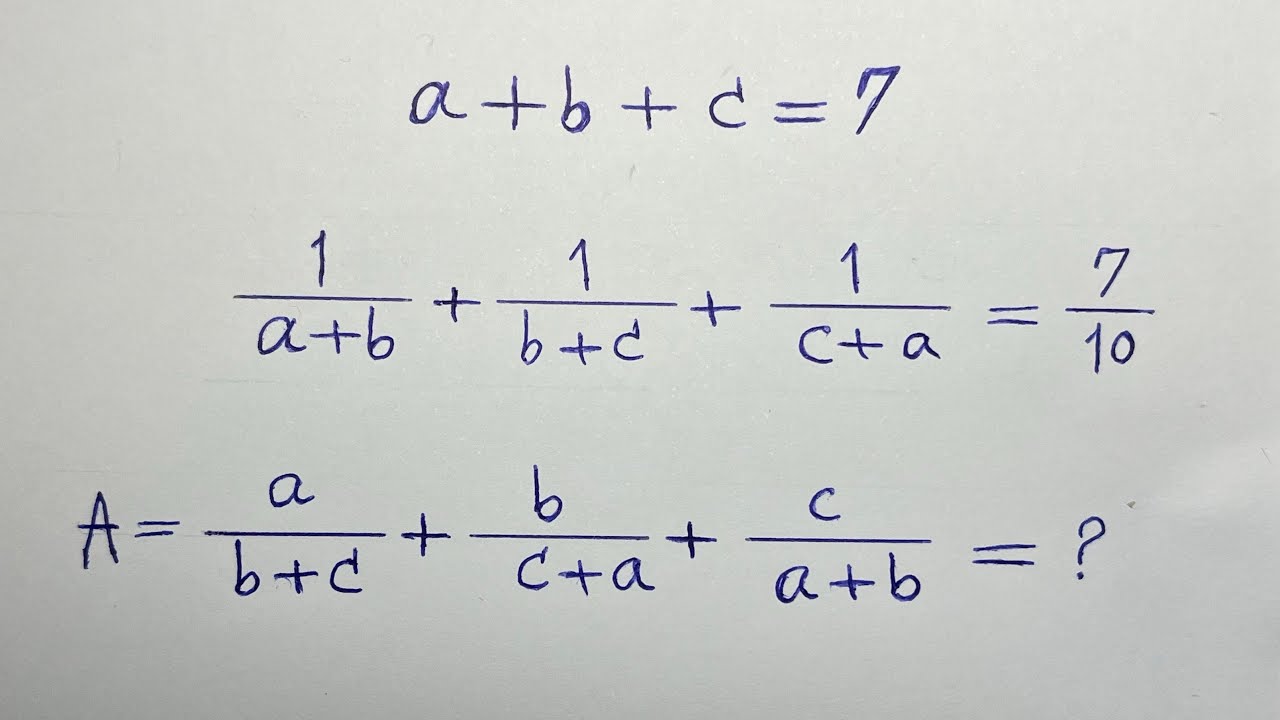 a + b + c = 7
1/(a+b) + 1/(b+c) + 1/(c+a) = 7/10
A = a/(b+c) + b/(c+a) + c/(a+b) = ?